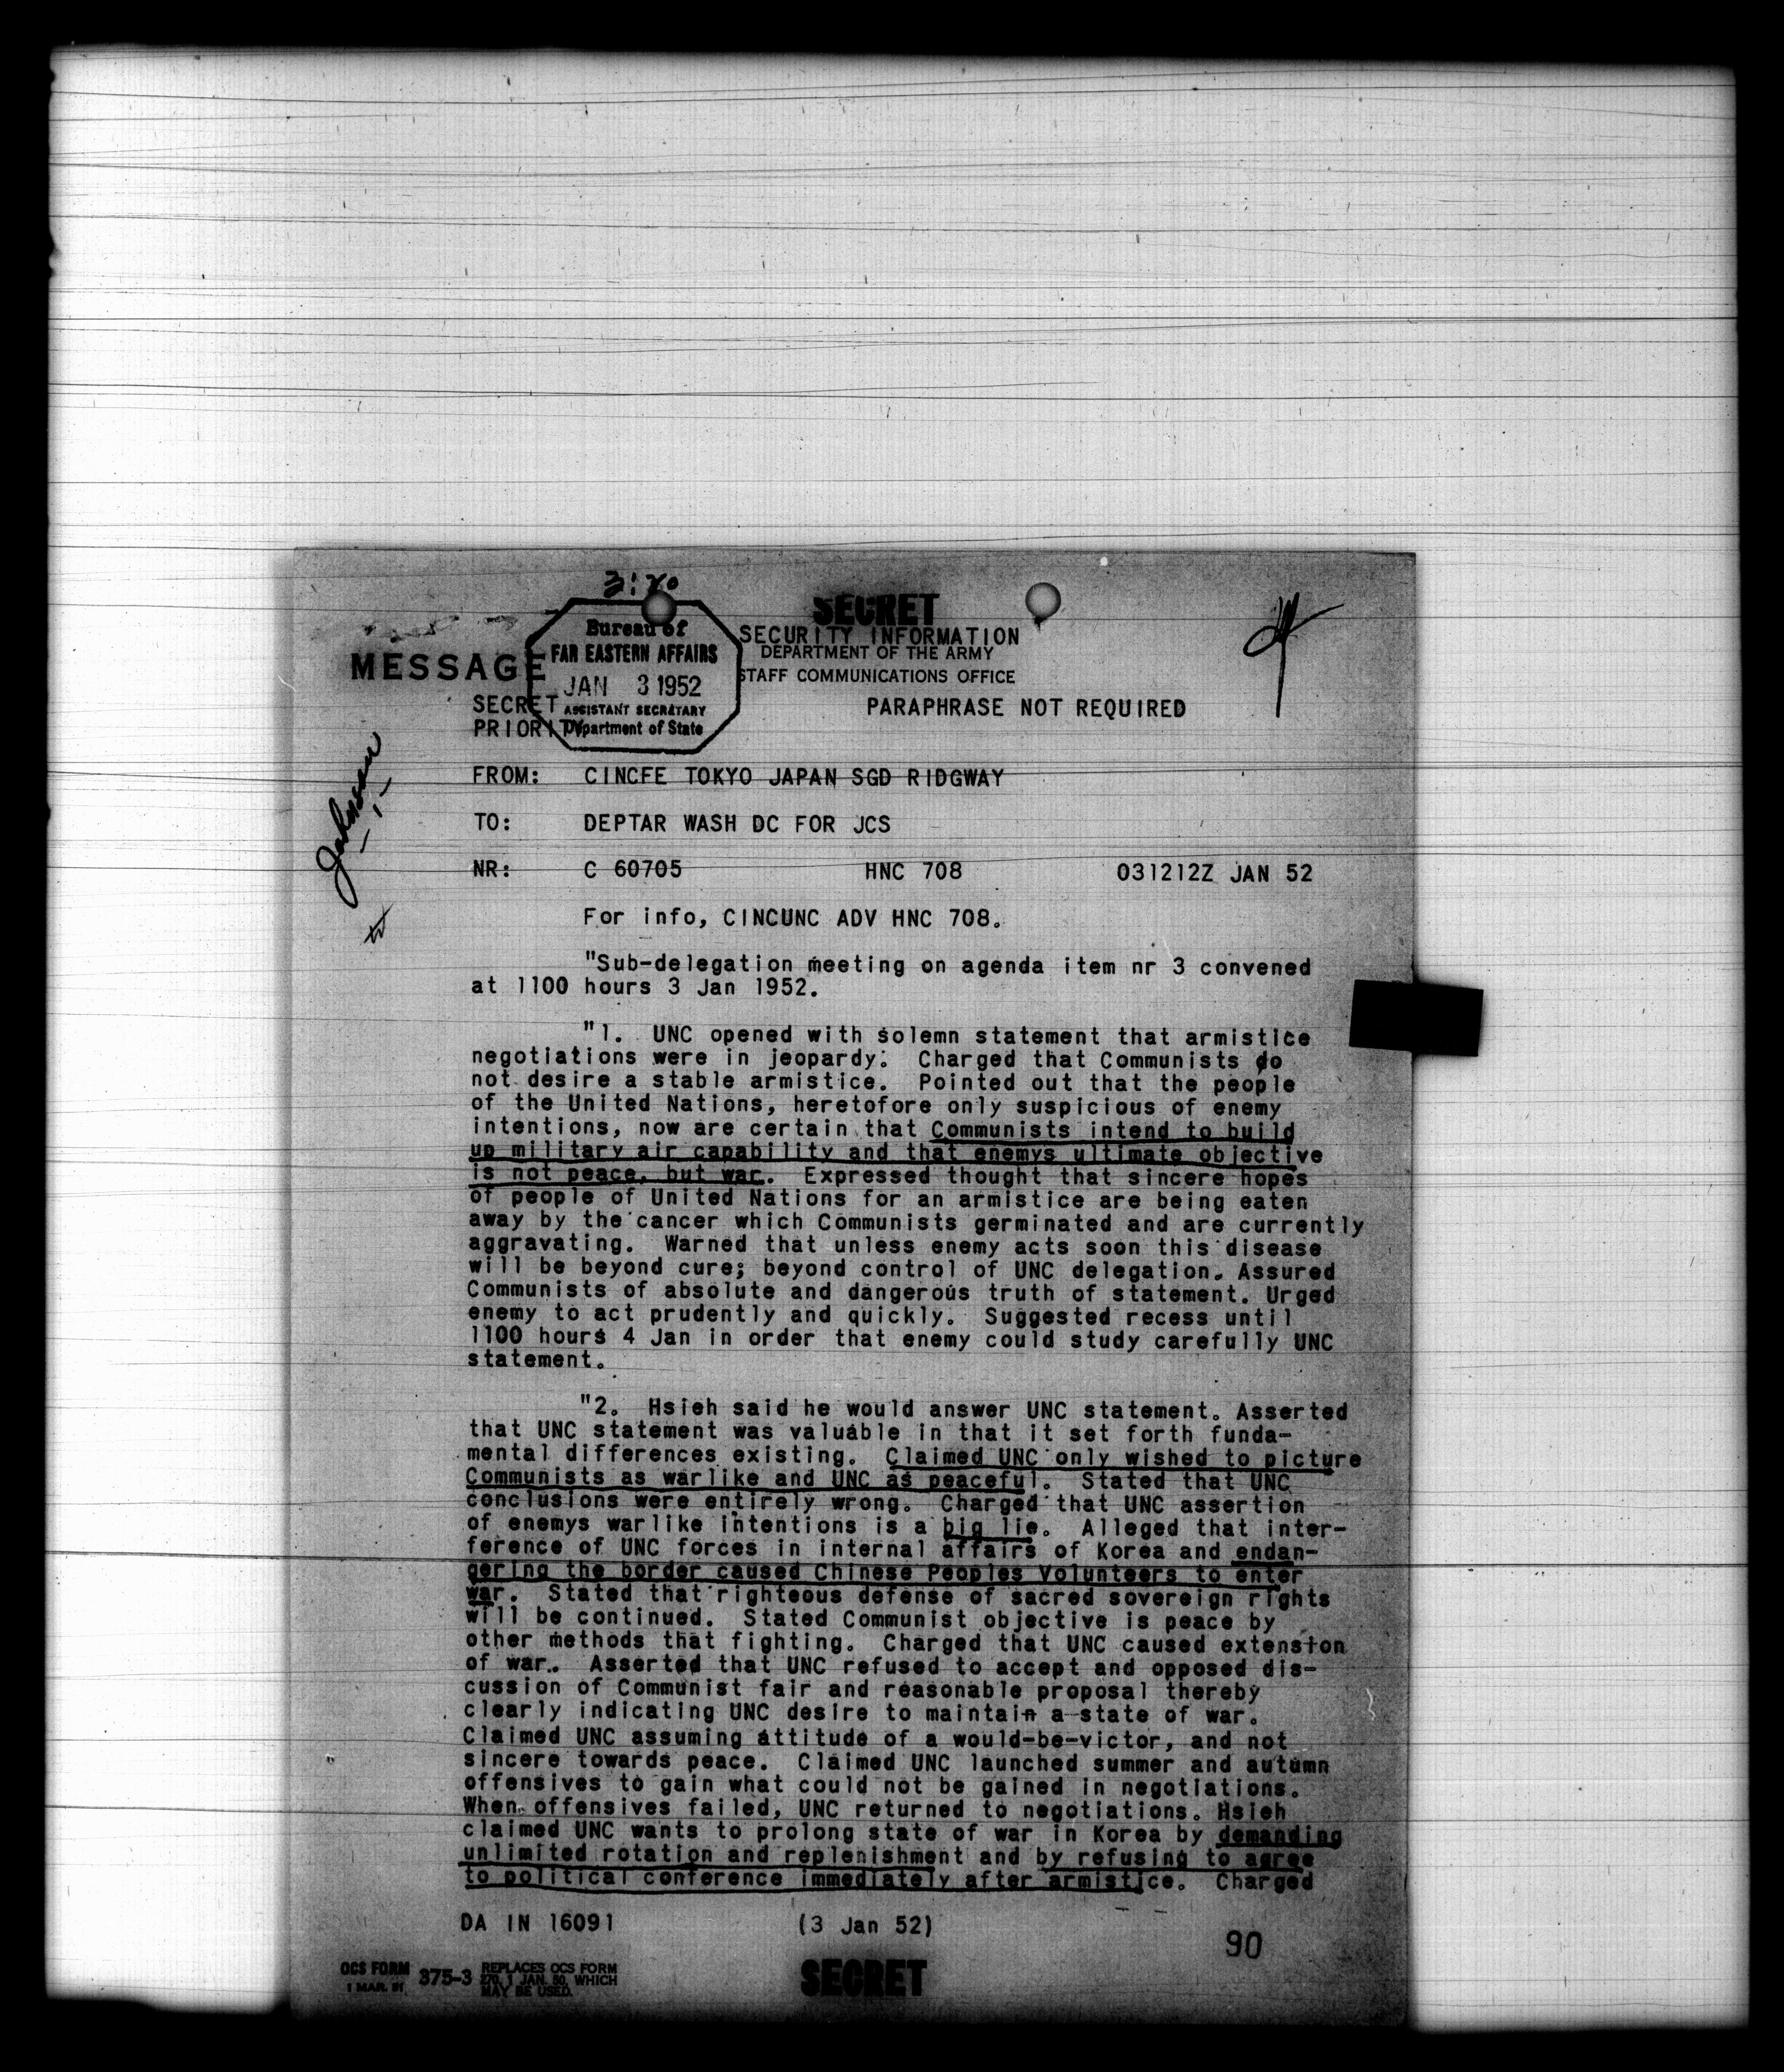 3:20
SECRET
SECURITY INFORMATION
DEPARTMENT OF THE ARMY
STAFF COMMUNICATIONS OFFICE
MESSAGE
Bureau of
FAR EASTERN AFFAIRS
JAN 3 1952
ASSISTANT SECRETARY
Department of State
SECRET
PRIORITY
PARAPHRASE NOT REQUIRED
Johnson
FROM: CINCFE TOKYO JAPAN SGD RIDGWAY
TO: DEPTAR WASH DC FOR JCS
NR: C 60705 HNC 708 031212Z JAN 52
For info, CINCUNC ADV HNC 708.
"Sub-delegation meeting on agenda item nr 3 convened
at 1100 hours 3 Jan 1952.
"1. UNC opened with solemn statement that armistice
negotiations were in jeopardy. Charged that Communists do
not desire a stable armistice. Pointed out that the people
of the United Nations, heretofore only suspicious of enemy
intentions, now are certain that Communists intend to build
up military air capability and that enemys ultimate objective
is not peace, but war. Expressed thought that sincere hopes
of people of United Nations for an armistice are being eaten
away by the cancer which Communists germinated and are currently
aggravating. Warned that unless enemy acts soon this disease
will be beyond cure; beyond control of UNC delegation. Assured
Communists of absolute and dangerous truth of statement. Urged
enemy to act prudently and quickly. Suggested recess until
1100 hours 4 Jan in order that enemy could study carefully UNC
statement.
"2. Hsieh said he would answer UNC statement. Asserted
that UNC statement was valuable in that it set forth funda-
mental differences existing. Claimed UNC only wished to picture
Communists as warlike and UNC as peaceful. Stated that UNC
conclusions were entirely wrong. Charged that UNC assertion
of enemys warlike intentions is a big lie. Alleged that inter-
ference of UNC forces in internal affairs of Korea and endan-
gering the border caused Chinese Peoples Volunteers to enter
war. Stated that righteous defense of sacred sovereign rights
will be continued. Stated Communist objective is peace by
other methods that fighting. Charged that UNC caused extension
of war. Asserted that UNC refused to accept and opposed dis-
cussion of Communist fair and reasonable proposal thereby
clearly indicating UNC desire to maintain a state of war.
Claimed UNC assuming attitude of a would-be-victor, and not
sincere towards peace. Claimed UNC launched summer and autumn
offensives to gain what could not be gained in negotiations.
When offensives failed, UNC returned to negotiations. Hsieh
claimed UNC wants to prolong state of war in Korea by demanding
unlimited rotation and replenishment and by refusing to agree
to political conference immediately after armistice. Charged
DA IN 16091 (3 Jan 52)
90
OCS FORM 375-3 REPLACES OCS FORM
1 MAR. 51 270, 1 JAN. 50, WHICH
MAY BE USED.
SECRET